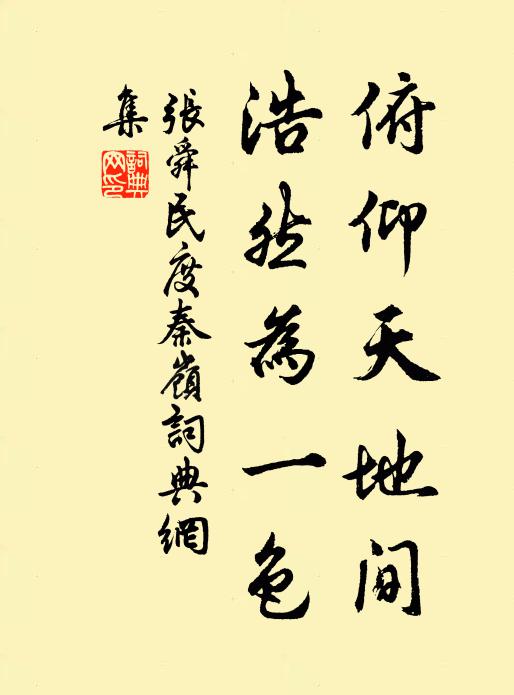 俯仰天地间
浩然為一色
張舜民度秦嶺詞典網
集
詞典
网印